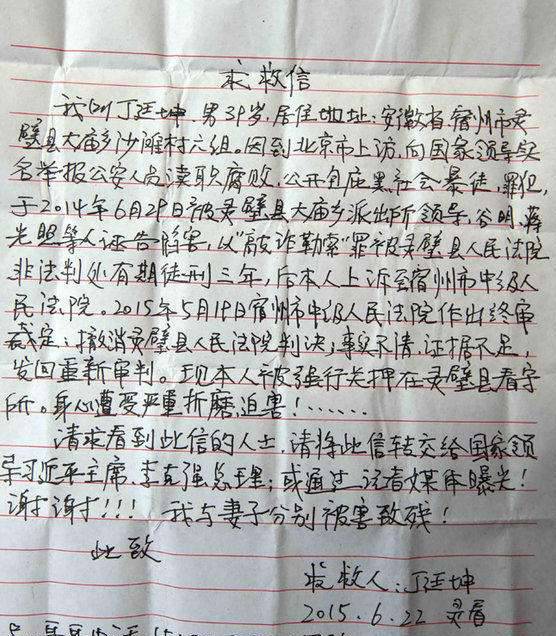 求救信
我叫丁廷坤，男39岁，居住地址：安徽省宿州市灵
璧县大庙乡沙滩村六组。因到北京市上访，向国家领导实
名举报公安人员渎职腐败，公开包庇黑社会暴徒，罪犯，
于2014年6月29日被灵璧县大庙乡派出所领导，谷明，蒋
光照等人诬告陷害，以“敲诈勒索”罪被灵璧县人民法院
非法判处有期徒刑三年，后本人上诉至宿州市中级人
民法院。2015年5月19日宿州市中级人民法院作出终审
裁定：撤消灵璧县人民法院判决；事实不清，证据不足，
发回重新审判。现本人被强行关押在灵璧县看守
所。身心遭受严重折磨迫害！……
请求看到此信的人士，请将此信转交给国家领
导习近平主席，李克强总理；或通过记者媒体曝光！
谢谢！！！我与妻子分别被害致残！
此致
求救人：丁廷坤
2015.6.22 灵看